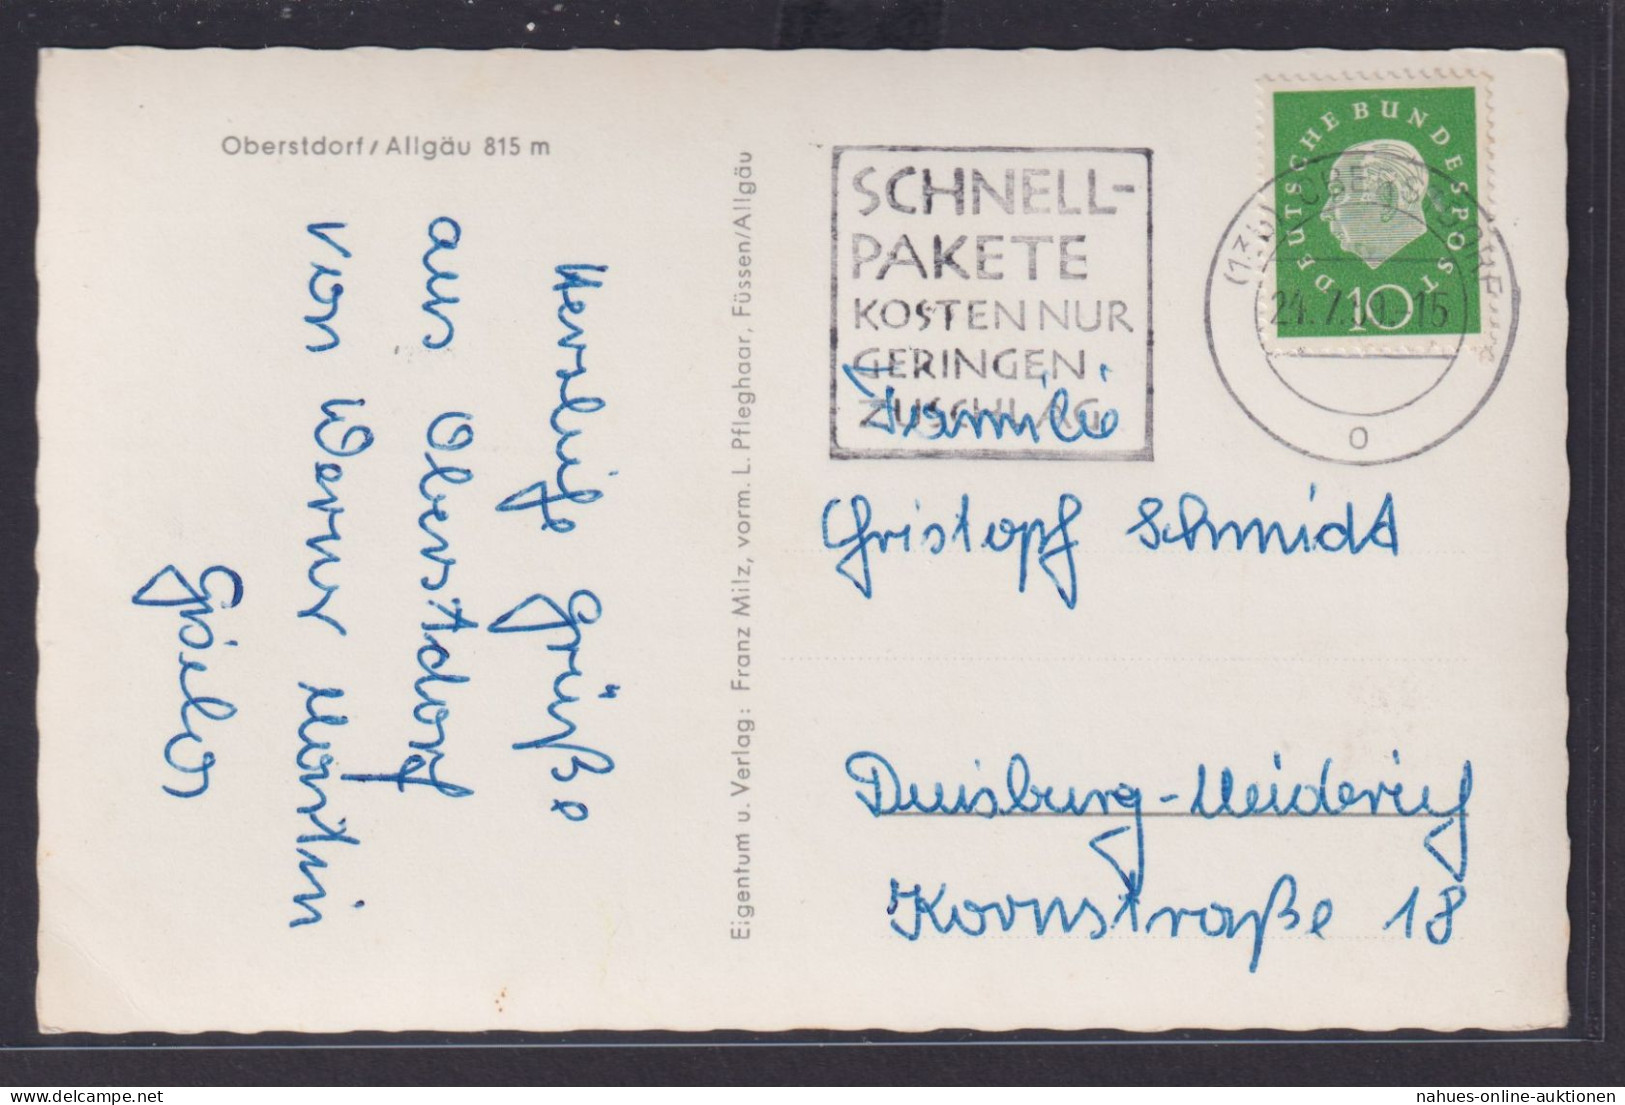 Oberstdorf/Allgäu 815 m
Herzliche Grüße
aus Oberstdorf
von Werner Martin
Gisela
Eigentum u. Verlag: Franz Milz, vorm. L. Pfleghaar, Füssen/Allgäu
SCHNELL-
PAKETE
KOSTEN NUR
GERINGEN
ZUSCHLAG
DEUTSCHE BUNDESPOST
10
(13b) OBERSTDORF
24.7. -15
o
Familie
Christoph Schmidt
Duisburg-Meiderich
Kornstraße 18
nahues-online-auktionen